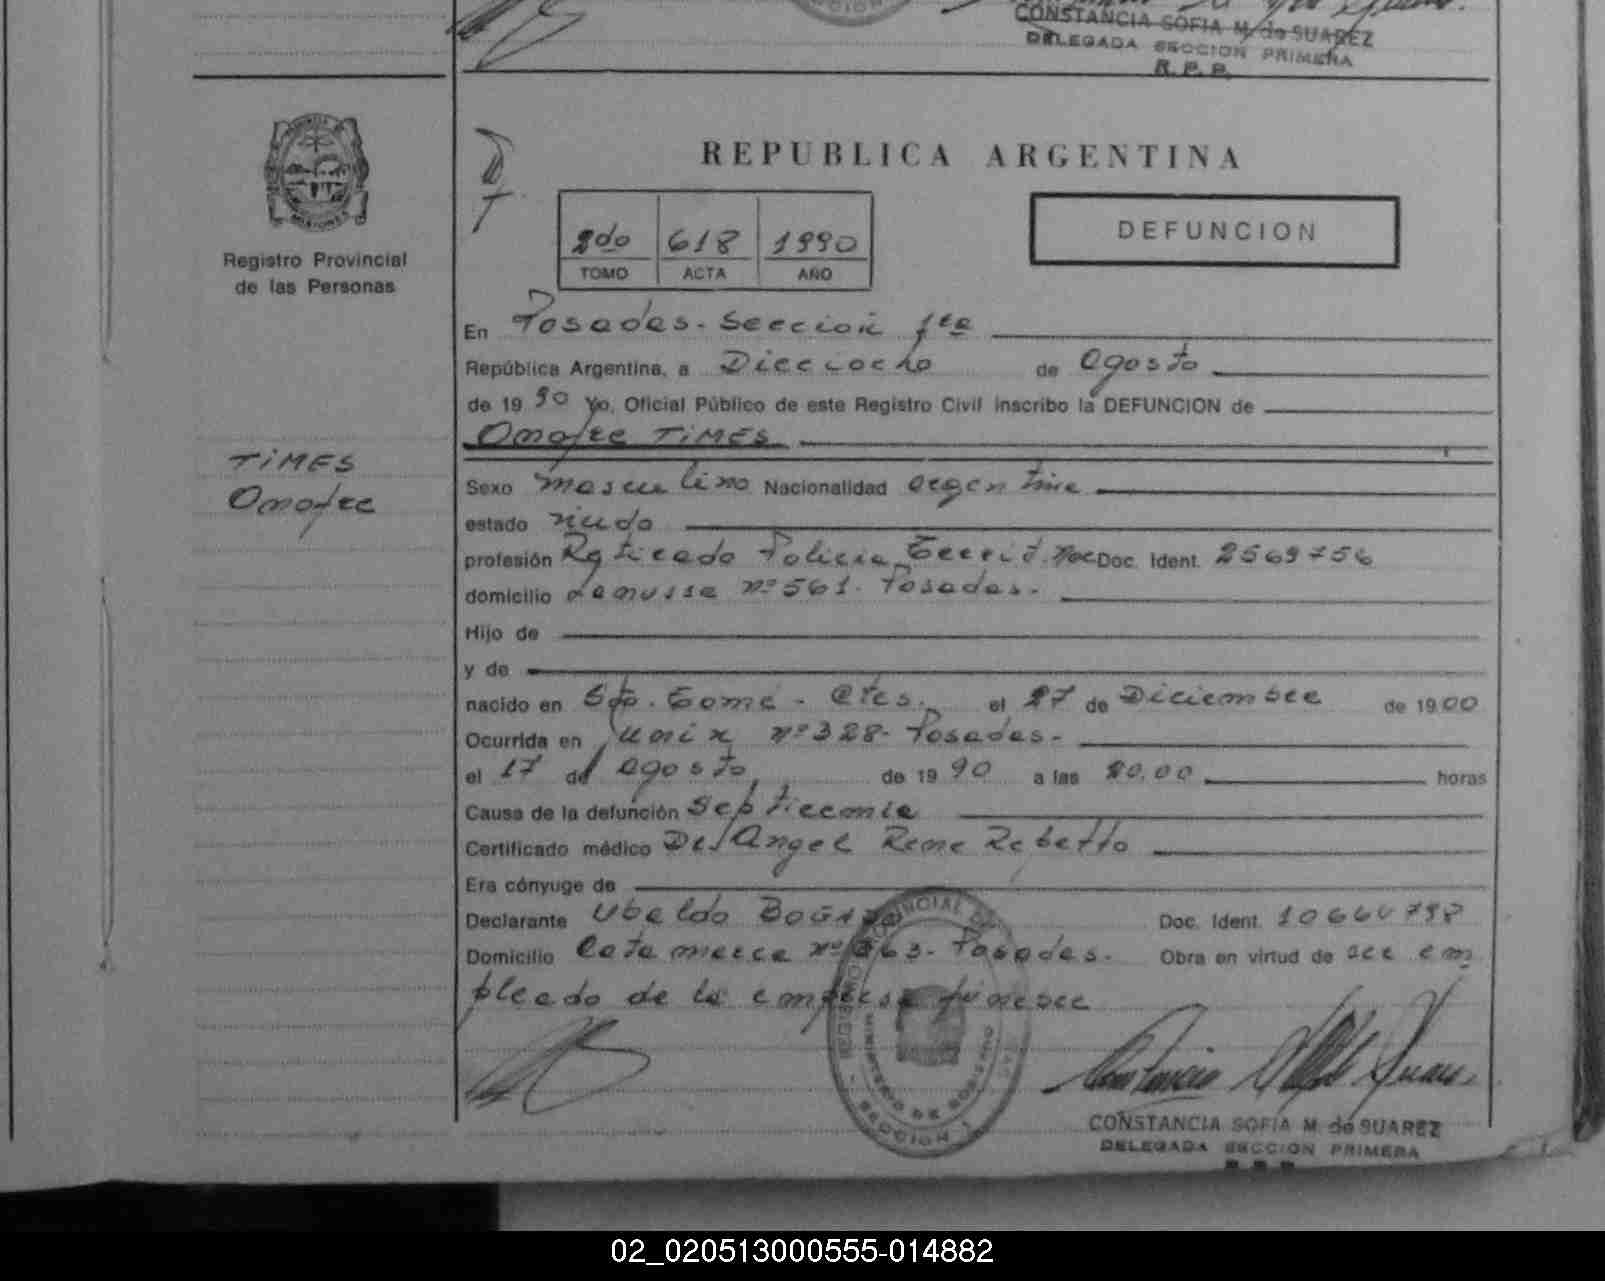 CONSTANCIA SOFIA M. de SUAREZ
DELEGADA SECCION PRIMERA
R. P. P.
REPUBLICA ARGENTINA
MISIONES
Registro Provincial
de las Personas
2do 618 1990
TOMO ACTA AÑO
DEFUNCION
En Posadas. Sección 1ra
República Argentina, a Dieciocho de Agosto
de 1990 Yo, Oficial Público de este Registro Civil inscribo la DEFUNCION de
Onofre TIMES
TIMES
Onofre
Sexo masculino Nacionalidad argentina
estado viudo
profesión Retirado Policia Territ. Doc. Ident. 2569756
domicilio Lanusse nº 561. Posadas.
Hijo de
y de
nacido en Sto. Tomé - Ctes. el 27 de Diciembre de 1900
Ocurrida en Junin nº 328- Posadas-
el 17 de Agosto de 1990 a las 20.00 horas
Causa de la defunción Septicemia
Certificado médico Dr. Angel Rene Rebatto
Era cónyuge de
Declarante Ubaldo Doc. Ident. 10660798
Domicilio Catamarca nº 363- Posadas. Obra en virtud de ser em
pleado de la empresa funebre
SECCION 1
CONSTANCIA SOFIA M. de SUAREZ
DELEGADA SECCION PRIMERA
R. P. P.
02_020513000555-014882